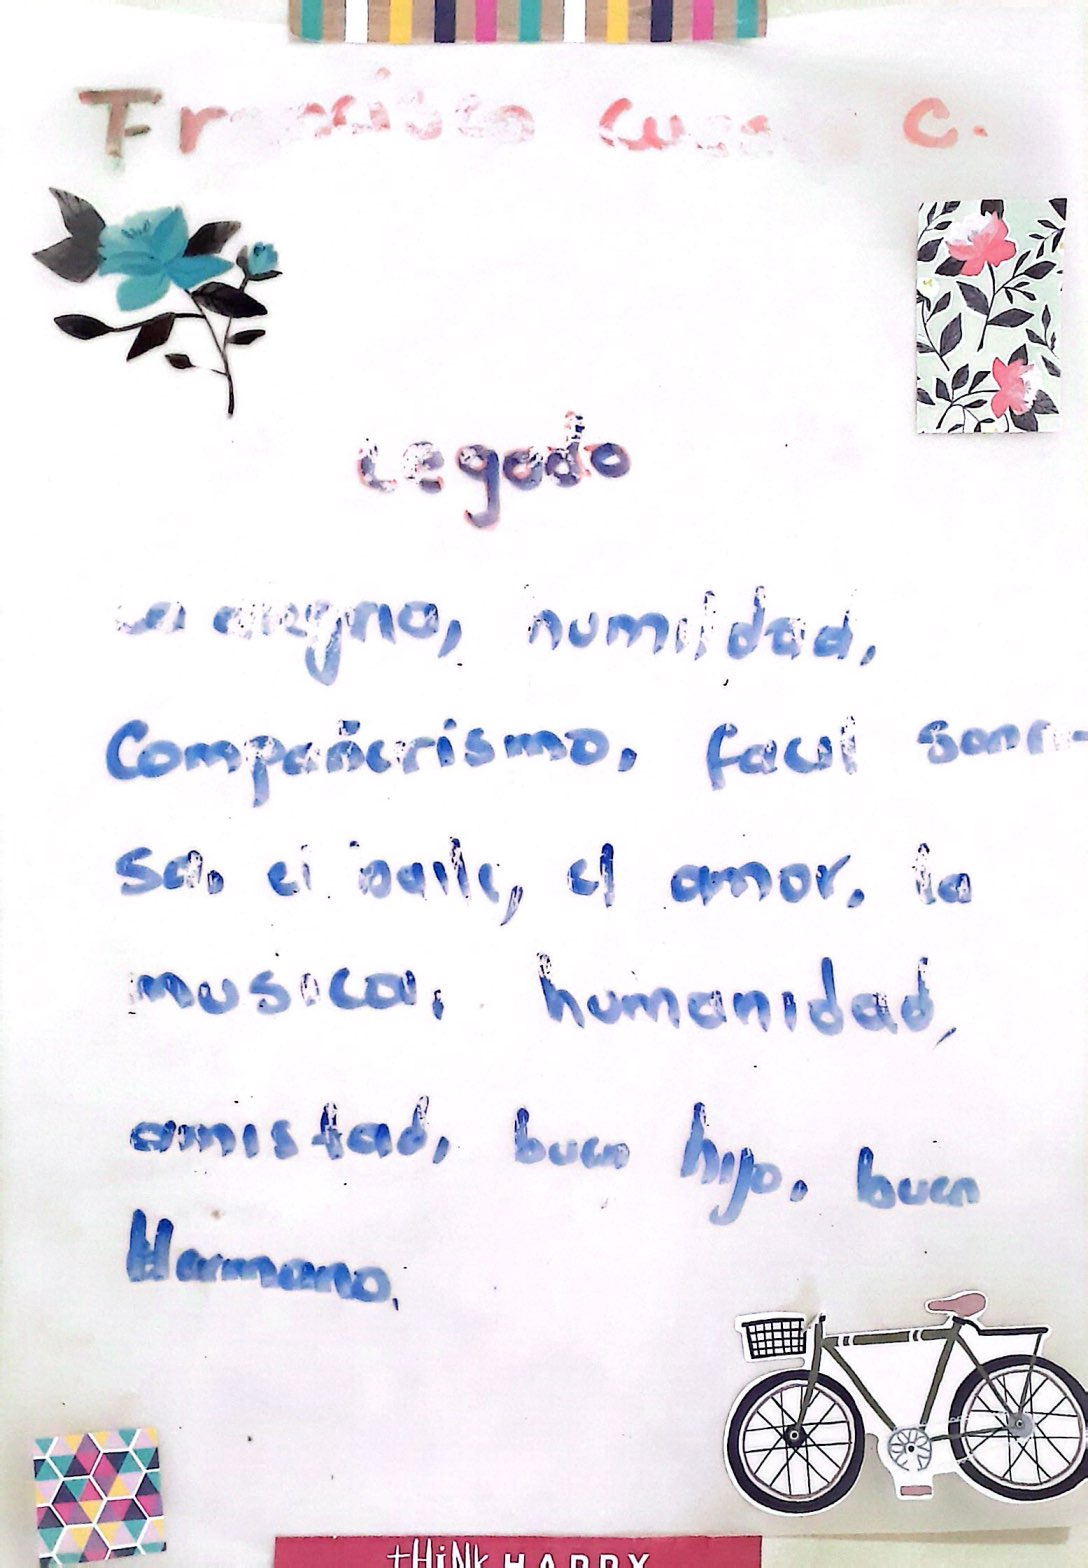 Francisco C.
Legado
La alegria, humildad,
Compañerismo, facil sonri-
sa, el baile, el amor, la
musica, humanidad,
amistad, buen hijo, buen
Hermano,
tHiNk HAPPY